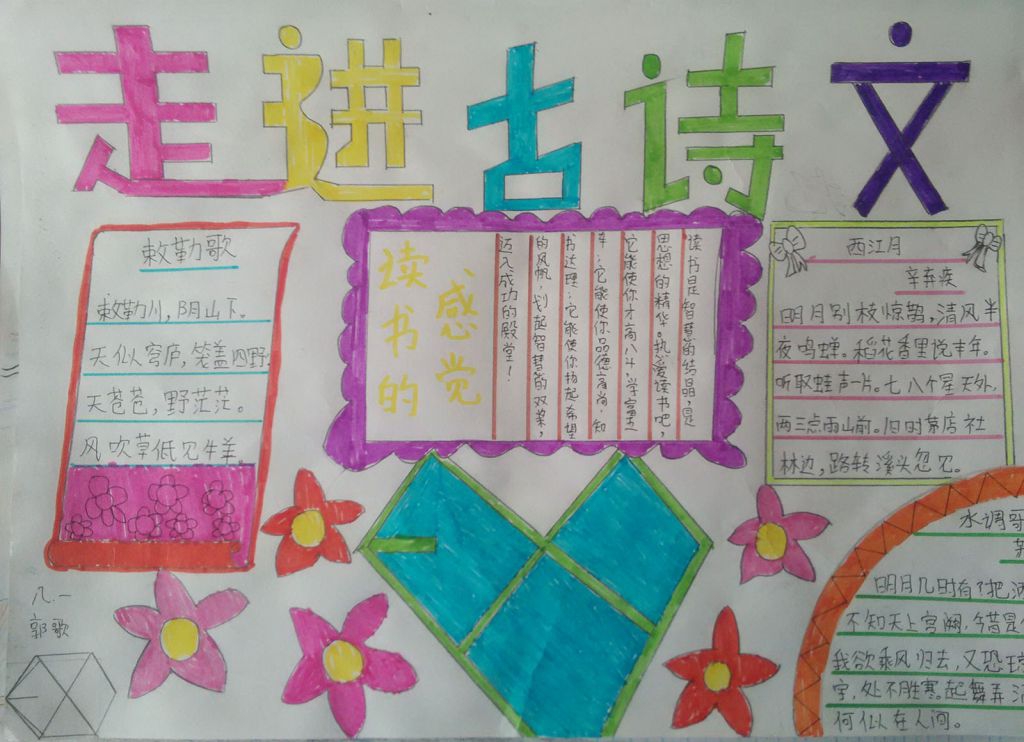 走进古诗文
敕勒歌
敕勒川，阴山下。
天似穹庐，笼盖四野。
天苍苍，野茫茫。
风吹草低见牛羊
读书的
感觉
读书是智慧的结晶，是
思想的精华。热爱读书吧，
它能使你才高八斗，学富五
车；它能使你品德高尚，知
书达理；它能使你扬起希望
的风帆，划起智慧的双桨，
迈入成功的殿堂！
西江月
辛弃疾
明月别枝惊鹊，清风半
夜鸣蝉。稻花香里说丰年。
听取蛙声一片。七八个星天外，
两三点雨山前。旧时茅店社
林边，路转溪头忽见。
水调歌
明月几时有？把酒
不知天上宫阙，今
我欲乘风归去，又恐琼
宇，处不胜寒。起舞弄
何似在人间。
八.一
郭歌